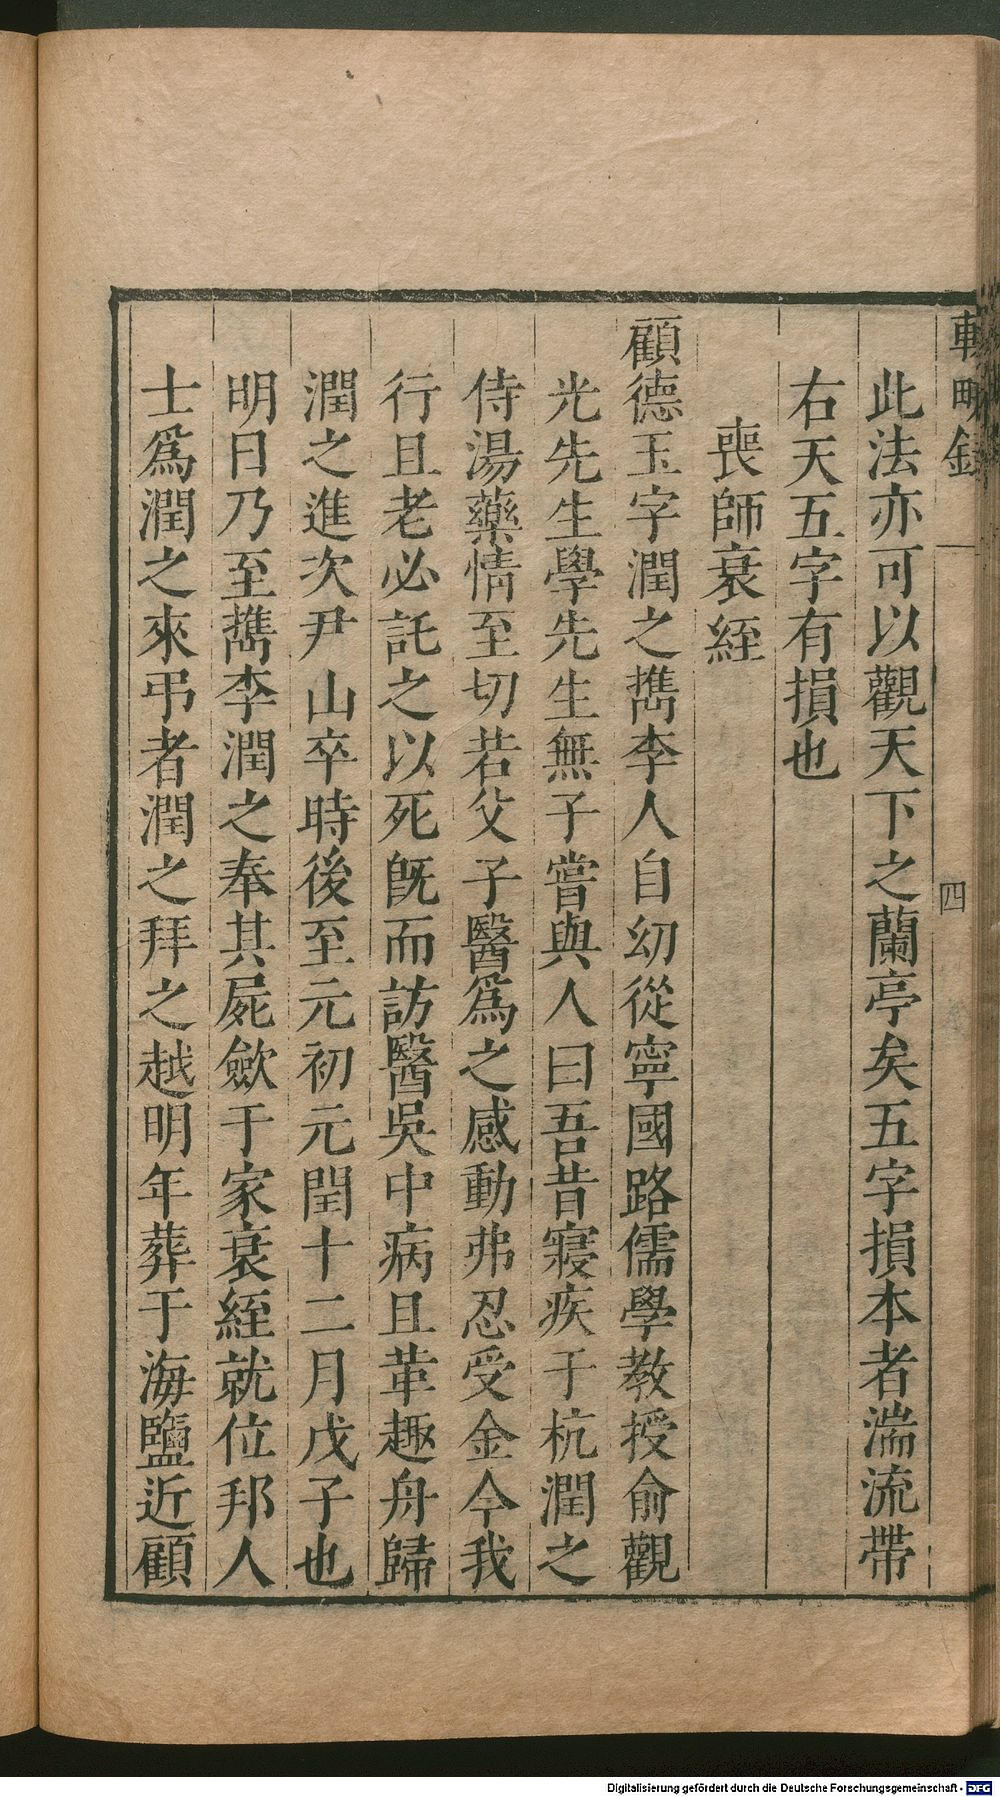 輟畊錄
四
此法亦可以觀天下之蘭亭矣五字損本者湍流帶
右天五字有損也
喪師衰絰
顧德玉字潤之檇李人自幼從寧國路儒學教授俞觀
光先生學先生無子嘗與人曰吾昔寢疾于杭潤之
侍湯藥情至切若父子醫爲之感動弗忍受金今我
行且老必託之以死旣而訪醫吳中病且革趣舟歸
潤之進次尹山卒時後至元初元閏十二月戊子也
明日乃至檇李潤之奉其屍歛于家衰絰就位邦人
士爲潤之來弔者潤之拜之越明年葬于海鹽近顧
Digitalisierung gefördert durch die Deutsche Forschungsgemeinschaft - DFG